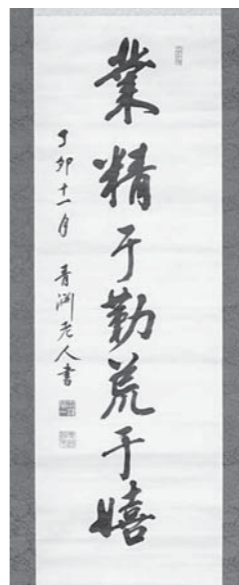 業精于勤荒于嬉
丁卯十一月 青淵老人書